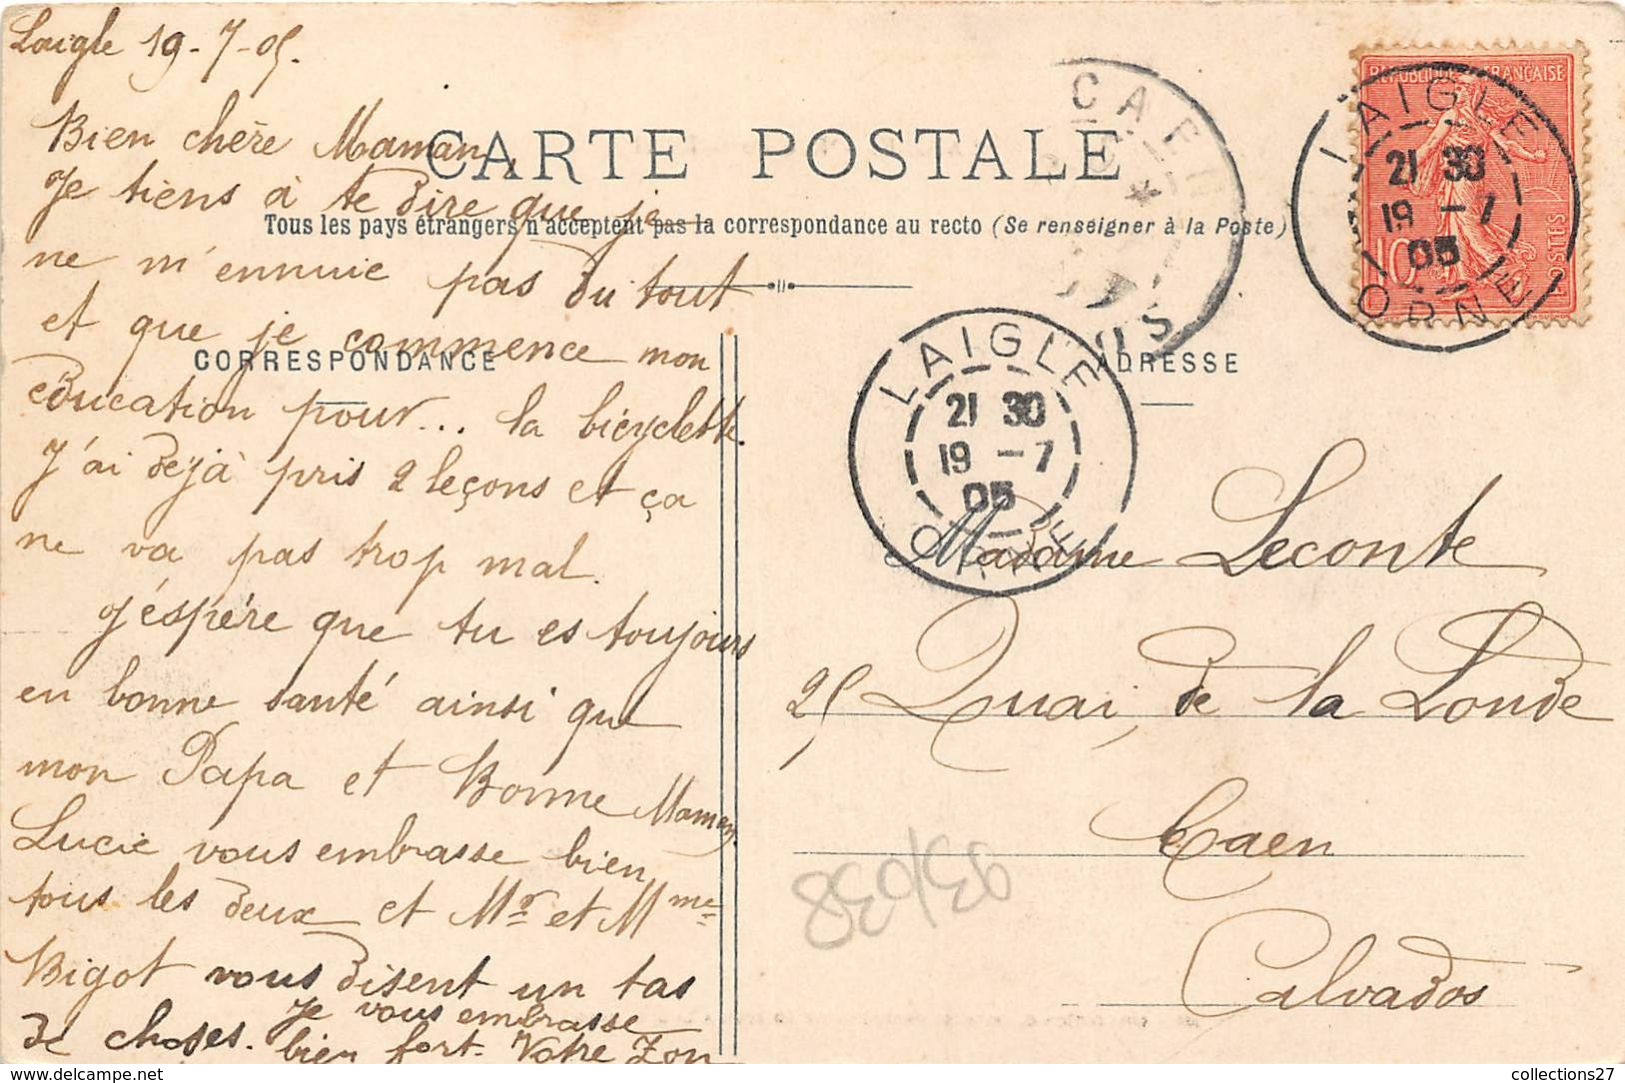 Laigle 19-7-05.
Bien chère Maman,
CARTE POSTALE
Je tiens à te dire que je
Tous les pays étrangers n'acceptent pas la correspondance au recto (Se renseigner à la Poste)
ne m'ennuie pas du tout
et que je commence mon
CORRESPONDANCE
ADRESSE
éducation pour... la bicyclette.
J'ai dejà pris 2 leçons et ça
ne va pas trop mal.
J'éspére que tu es toujours
en bonne santé ainsi que
mon Papa et Bonne Maman.
Lucie vous embrasse bien
tous les deux et Mr et Mme
Bigot vous disent un tas
de choses. Je vous embrasse
bien fort. Votre Zon
REPUBLIQUE FRANÇAISE
10
POSTES
LAIGLE
21 30
19 -7
05
ORNE
LAIGLE
21 30
19 -7
05
ORNE
CAE
OS
Madame Leconte
25 Quai de la Londe
Caen
Calvados
collections27